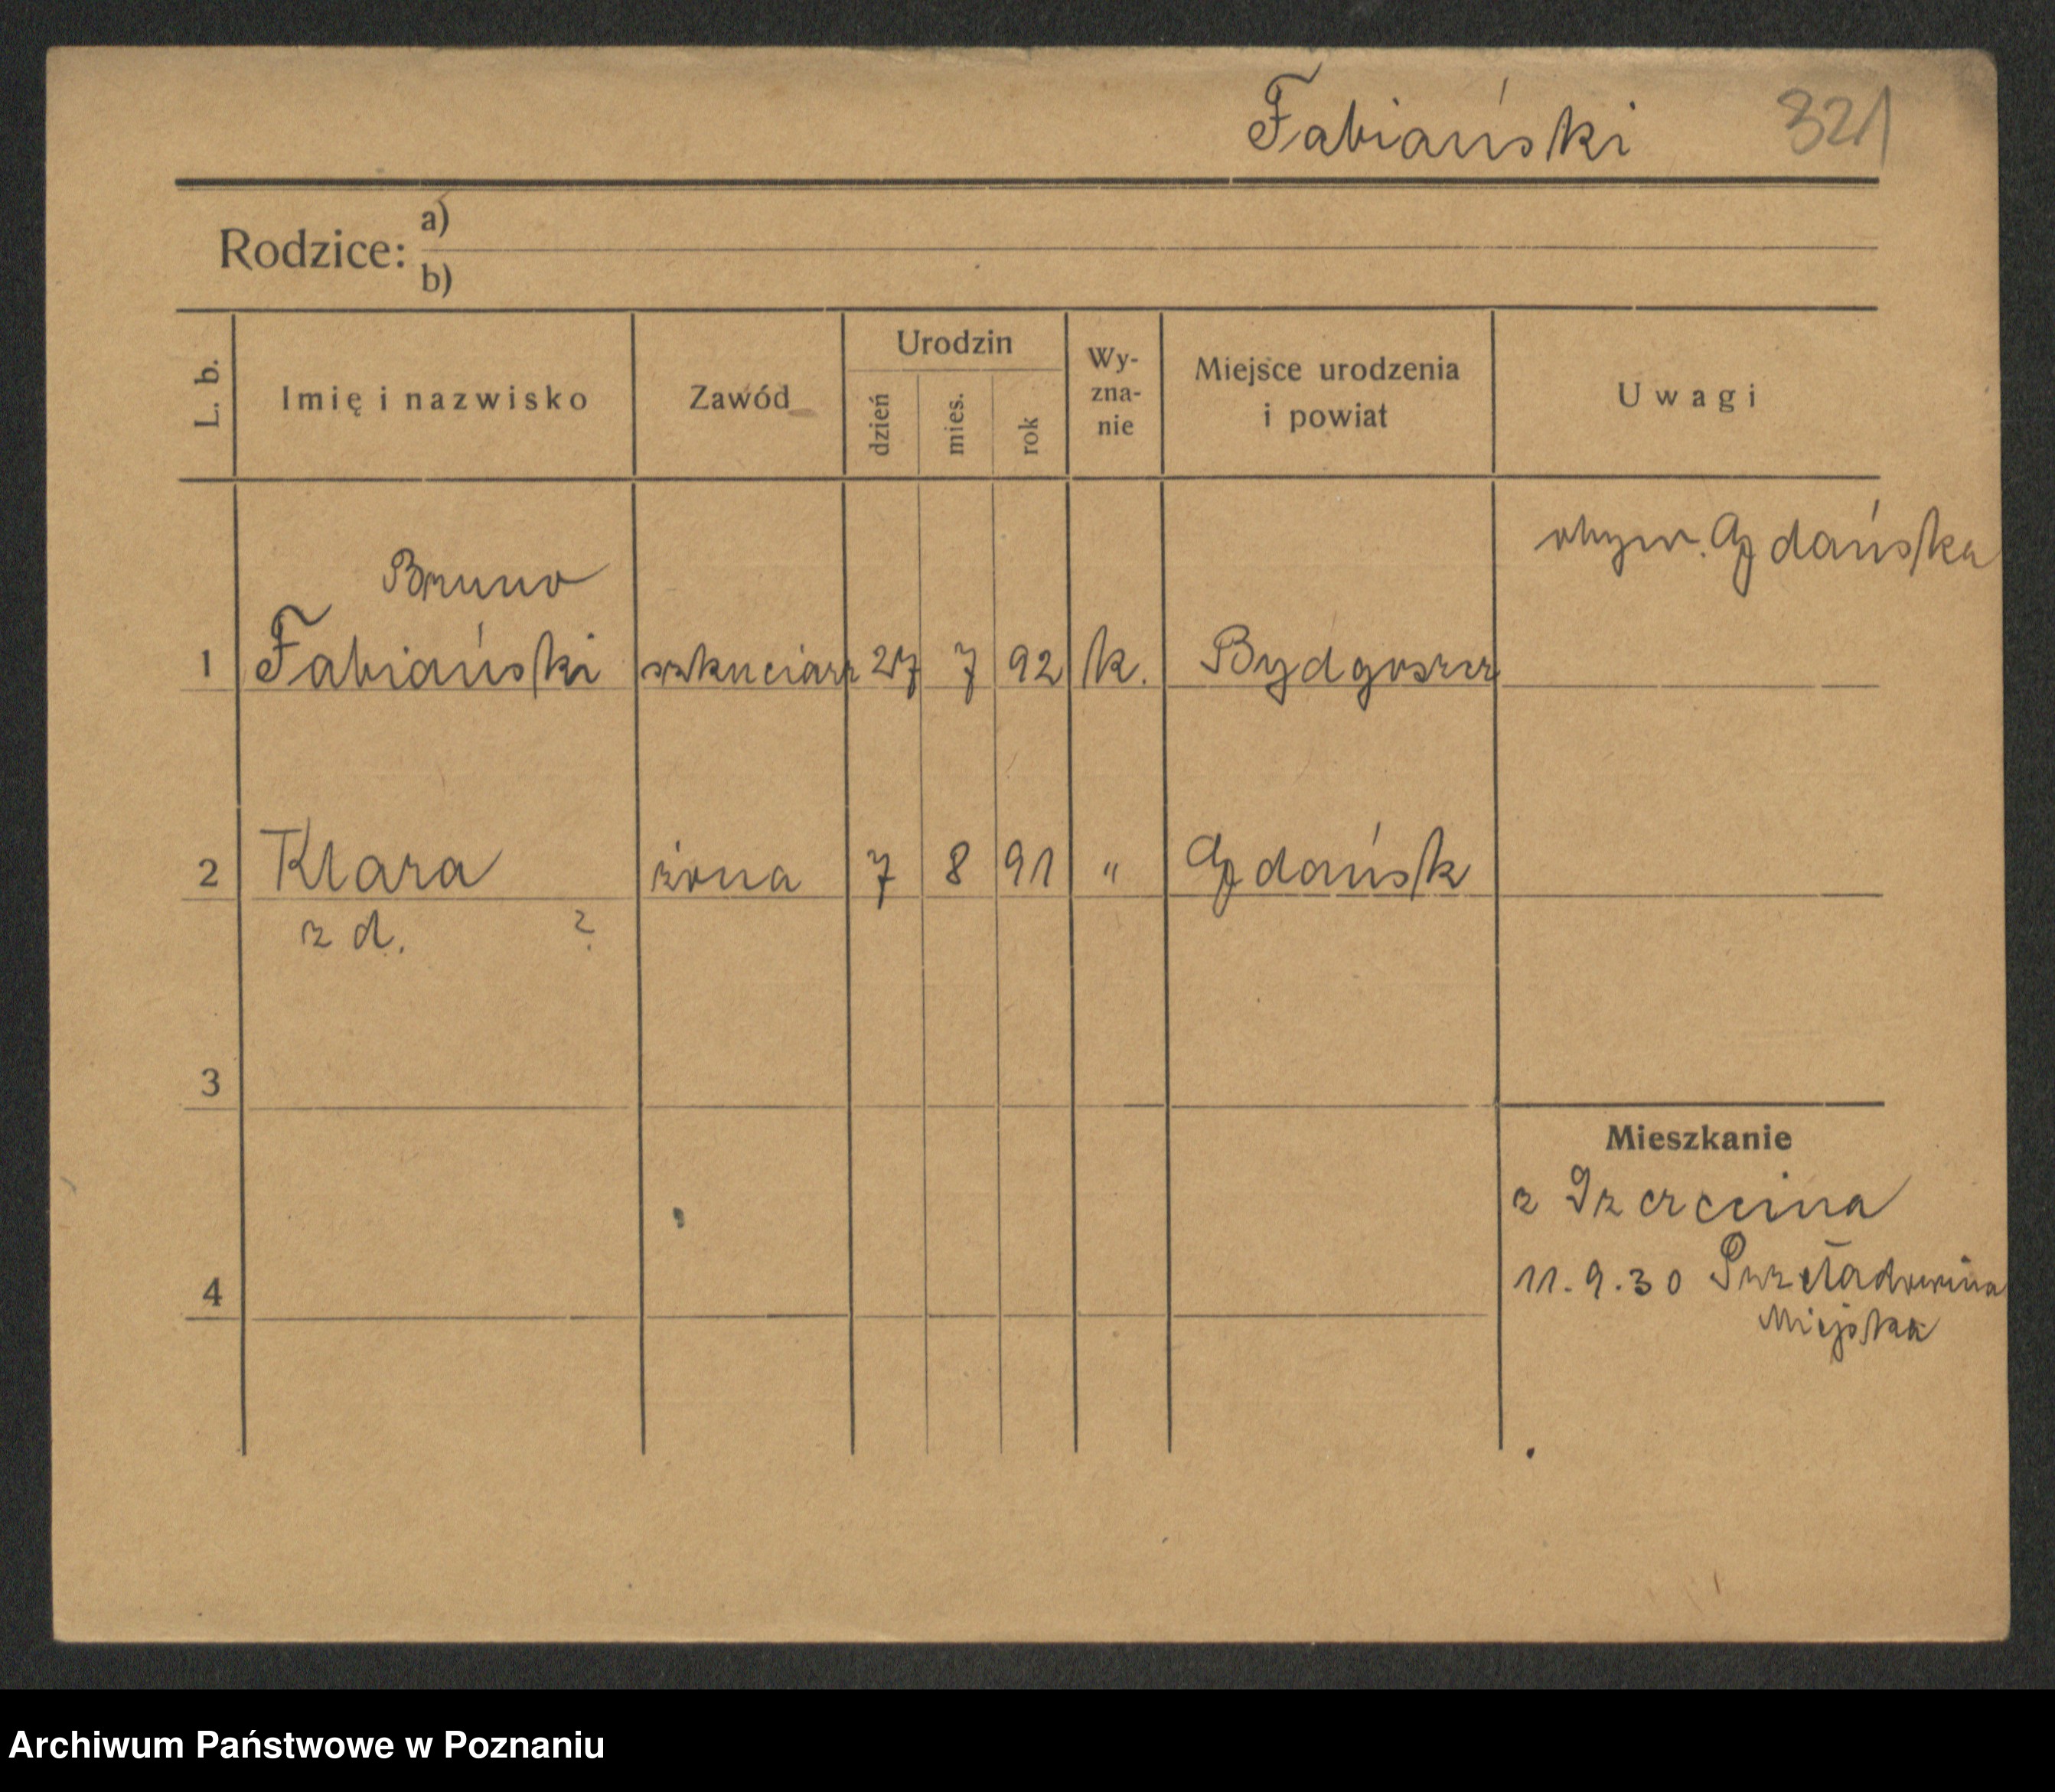 Fabiański 321
Rodzice: a)
b)
L. b. Imię i nazwisko Zawód Urodzin dzień mies. rok Wy-zna-nie Miejsce urodzenia i powiat Uwagi
obyw. Gdańska
Bruno
1 Fabiański szkuciarz 27 7 92 k. Bydgoszcz
2 Klara żona 7 8 91 " Gdańsk
z d. ?
3
Mieszkanie
z
4 11.9.30 Przeładownia
Miejska
Archiwum Państwowe w Poznaniu